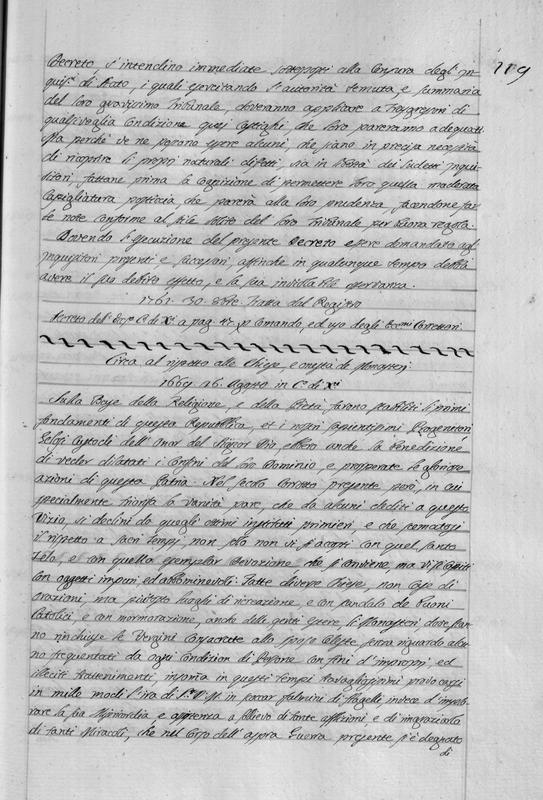 119
Decreto, s'intendino immediate sottoposti alla Censura degl' In-
quis.ri di Stato, i quali esercitando l'autorità temuta, e summaria
del loro gravissimo Tribunale, dovranno applicare a Trasgressori di
qualsivoglia Condizione quei Castighi, che loro pareranno adeguati
Ma perchè ve ne potrano esere alcuni, che siano in precisa necessità
di ricoprire li proprj naturali difetti, sia in libertà dei sudetti Inqui-
sitori, fattane prima la cognizione di permettere loro quella moderata
Capigliatura posticcia che parerà alla loro prudenza, facendone far
le note conforme al stile solito del loro Tribunale per buona regola.
Dovendo l'esecuzione del presente Decreto essere demandata agl'
Inquisitori presenti e sucessori, affinche in qualunque tempo debba
avere il suo debito effetto, e la sua inviolabile osservanza.
1761. 30. Tratta del Registro
Decreto dell' C. di X.ci a pag. 47. Comando, ed uso degli Correttori.
Circa al rispetto alle Chiese, e onestà de Monasterj
1669 26. Agosto in C. di X.ci
Sulla Base della Religione, e della Pietà furono stabiliti li primi
fondamenti di questa Repubblica, et i nostri sapientissimi Progenitori
Gelosi Custodi dell' onor del Signor Dio, ebbero anche la benedizione
di veder dilatati i Confini del loro Dominio, e prosperate le gloriose
azioni di questa Patria. Nel secolo Corrotto presente però, in cui
specialmente trionfa la vanità pare, che da alcuni dediti a questo
Vizio, si declini da quegli ottimi instituti primieri, e che
il rispetto a sacri Tempj, non solo non vi si accosti con quel santo
Zelo, e con quella esemplar Devozione che si conviene, ma vi si capiti
con oggetti impuri ed abbominevoli. Fatte diverse Chiese, non Case di
orazioni ma piutosto luoghi di ricreazione, e con scandalo de Buoni
Catolici, e con mormorazione, anche delle genti estere, li Monasteri dove stan-
no rinchiuse le Vergini Consacrate allo sposo Celeste senza riguardo alcu-
no frequentati da ogni Condizion di Persone con fini d'improprj, ed
illeciti trattenimenti, in questi Tempi travagliatissimi provocarsi
in mille modi l'ira di S. D. M. in scoccar fulmini di flagelli invece d'implo-
rare la sua Misericordia e assistenza a sollievo di tante afflizioni e di ringraziarla
di tanti Miracoli, che nel Corso dell' aspra Guerra presente s'è degnato
di